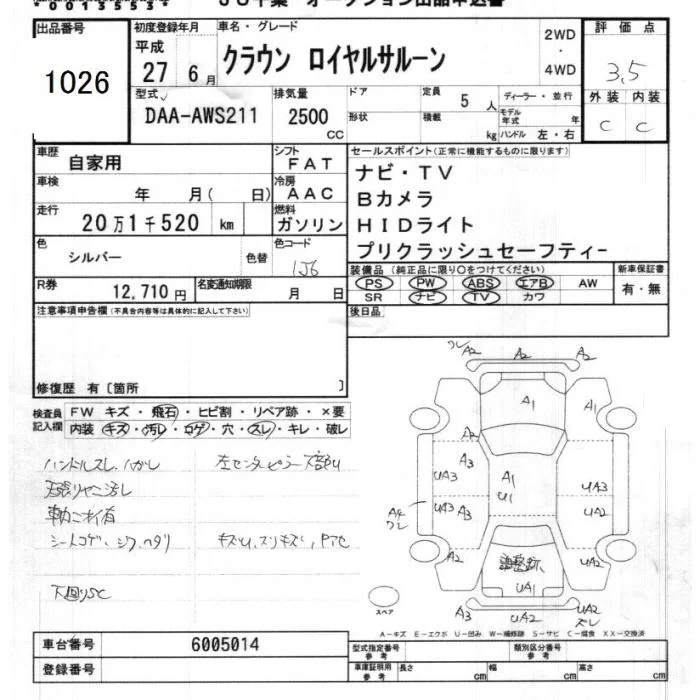 出品番号
1026
初度登録年月
平成
27 6月
車名・グレード
クラウン ロイヤルサルーン
2WD
・
4WD
評価点
3,5
外装 内装
C C
型式
DAA-AWS211
排気量
2500
CC
ドア
形状
定員 5 人
積載 kg
ディーラー・並行
モデル年式 年
ハンドル 左・右
車歴 自家用
シフト FAT
車検 年 月( 日)
冷房 AAC
走行 20万1千520 km
燃料 ガソリン
色 シルバー 色替
色コード 1J6
R券 12,710円
名変通知期限 月 日
セールスポイント(正常に機能するものに限ります)
ナビ・TV
Bカメラ
HIDライト
プリクラッシュセーフティー
装備品(純正品に限り○をつけてください)
PS PW ABS エアB AW
SR ナビ TV カワ
新車保証書
有・無
後日品
注意事項申告欄(不具合内容等は具体的に記入して下さい)
修復歴 有〔箇所 〕
検査員記入欄
FW キズ・飛石・ヒビ割・リペア跡・×要
内装 キズ・汚レ・コゲ・穴・スレ・キレ・破レ
ハンドルスレ、ハガレ
天張リヤニ汚レ
車内ニオイ有
シートコゲ、シワ、ヘタリ
下回りSC
A2 A2 A2
A1 A1
A2
A3
UA3
A1
U1
UA3
UA3 A3
UA2
A2
調整跡
UA2
UA1
スペア
A3 UA2 UA2
ズレ
A-キズ E-エクボ U-凹み W-補修跡 S-サビ C-腐食 XX-交換済
車台番号 6005014
登録番号
型式指定番号 参考
類別区分番号 参考
車庫証明用 参考
長さ cm 幅 cm 高さ cm